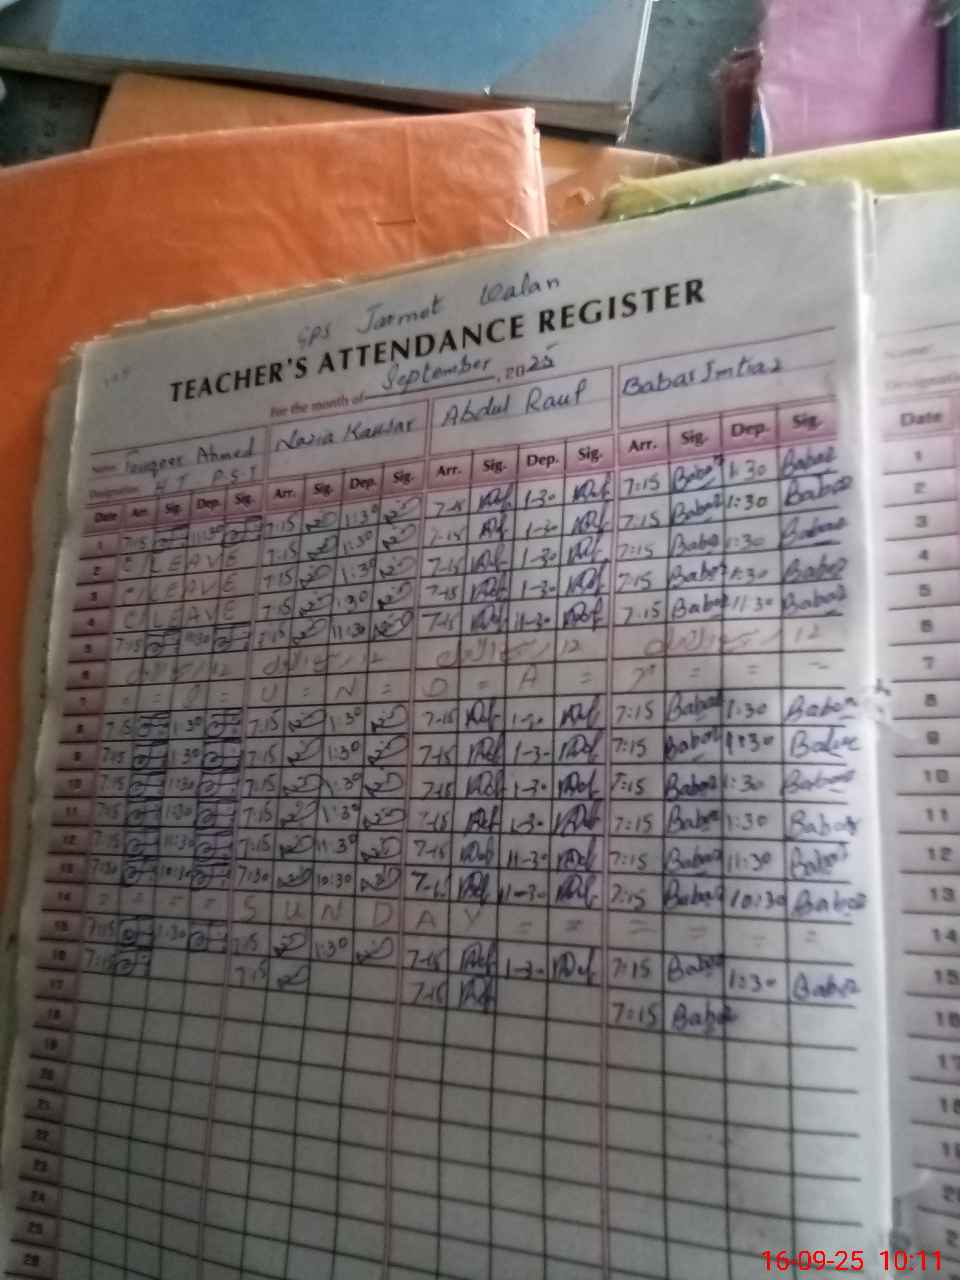 GPS Jarmot Kalan
TEACHER'S ATTENDANCE REGISTER
For the month of September, 2025
Name Ahmed Nazia Kausar Abdul Rauf Babar Imtiaz
Designation H.T P.S.T
Date Arr. Sig. Dep. Sig. Arr. Sig. Dep. Sig. Arr. Sig. Dep. Sig. Arr. Sig. Dep. Sig.
1 7:15 11:30 7:15 1:30 7-15 1-30 7:15 Babar 1:30 Babar
2 C/LEAVE 7:15 1:30 7-15 1-30 7:15 Babar 1:30 Babar
3 C/LEAVE 7:15 1:30 7-15 1-30 7:15 Babar 1:30 Babar
4 C/LEAVE 7:15 1:30 7-15 1-30 7:15 Babar 1:30 Babar
5 7:15 11:30 7:15 11:30 7-15 11-30 7:15 Babar 11:30 Babar
6 12 12 12 12
7 = = = U = N = D = A = = = =
8 7:15 1:30 7:15 1:30 7-15 1-30 7:15 Babar 1:30 Babar
9 7:15 1:30 7:15 1:30 7-15 1-30 7:15 Babar 1:30 Babar
10 7:15 1:30 7:15 1:30 7-15 1-30 7:15 Babar 1:30 Babar
11 7:15 1:30 7:15 1:30 7-15 1-30 7:15 Babar 1:30 Babar
12 7:15 11:30 7:15 11:30 7-15 11-30 7:15 Babar 11:30 Babar
13 7:30 10:30 7:30 10:30 7-15 11-30 7:15 Babar 10:30 Babar
14 = = = = S U N D A Y = = = = = =
15 7:15 1:30 7:15 1:30 7-15 1-30 7:15 Babar 1:30 Babar
16 7:15 7:15 7-15 7:15 Babar
17
18
19
20
21
22
23
24
25
26
Name:
Designation
Date
1
2
3
4
5
6
7
8
9
10
11
12
13
14
15
16
17
18
16-09-25 10:11